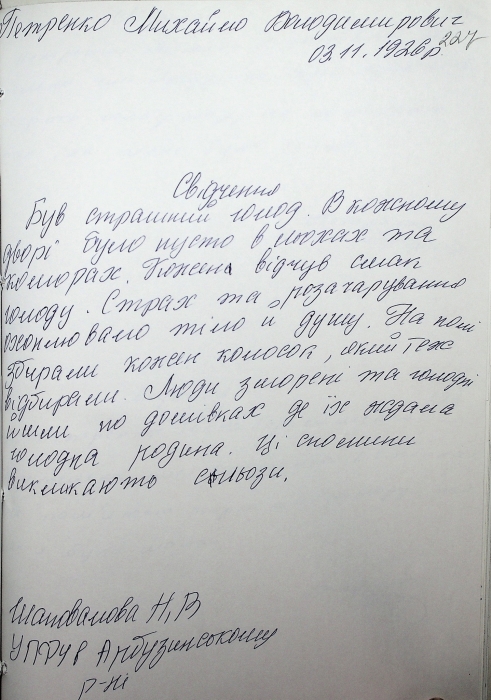 Петренко Михайло Володимирович
03.11.1926р.
227
Свідчення
Був страшний голод. В кожному
дворі було пусто в льохах та
коморах. Кожен відчув смак
голоду. Страх та розачарування
охоплювало тіло и душу. На полі
збирали кожен колосок, який теж
відбирали. Люди зморені та голодні
ішли по домівках де їх ждала
голодна родина. Ці спомини
викликають сльози.
Шаповалова Н,В
УПФУ в Арбузинському
р-ні